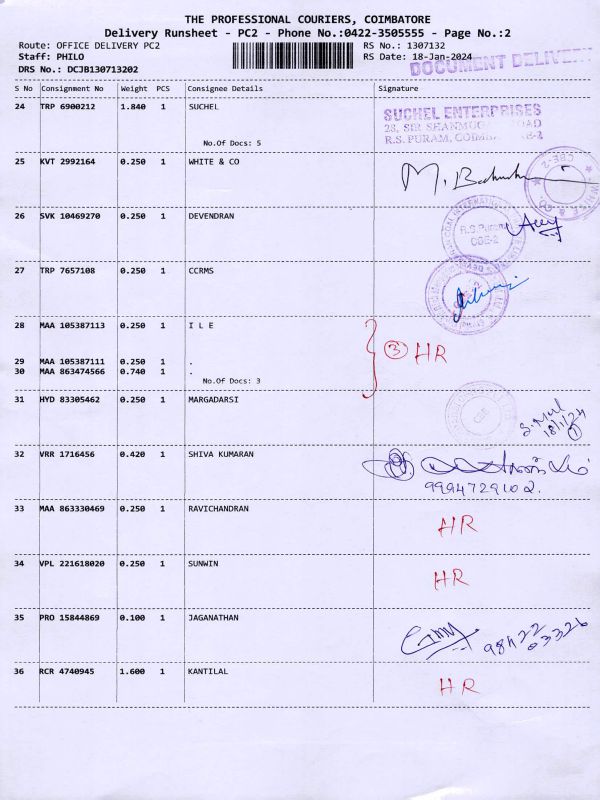 THE PROFESSIONAL COURIERS, COIMBATORE
Delivery Runsheet - PC2 - Phone No.:0422-3505555 - Page No.:2
Route: OFFICE DELIVERY PC2 RS No.: 1307132
Staff: PHILO RS Date: 18-Jan-2024
DRS No.: DCJB130713202 DOCUMENT DELIVERY
S No Consignment No Weight PCS Consignee Details Signature
24 TRP 6900212 1.840 1 SUCHEL
SUCHEL ENTERPRISES
28, SIR SHANMOG ROAD
R.S. PURAM, COIMBA CBE-2
No.Of Docs: 5
25 KVT 2992164 0.250 1 WHITE & CO
CBE-2
WHITE & CO.
26 SVK 10469270 0.250 1 DEVENDRAN
R.S. Puram
CBE-2
27 TRP 7657108 0.250 1 CCRMS
28 MAA 105387113 0.250 1 I L E
3 HR
29 MAA 105387111 0.250 1 .
30 MAA 863474566 0.740 1 .
No.Of Docs: 3
31 HYD 83305462 0.250 1 MARGADARSI
CBE
18/1/24
32 VRR 1716456 0.420 1 SHIVA KUMARAN
9994729102.
33 MAA 863330469 0.250 1 RAVICHANDRAN
HR
34 VPL 221618020 0.250 1 SUNWIN
HR
35 PRO 15844869 0.100 1 JAGANATHAN
98422
03326
36 RCR 4740945 1.600 1 KANTILAL
HR